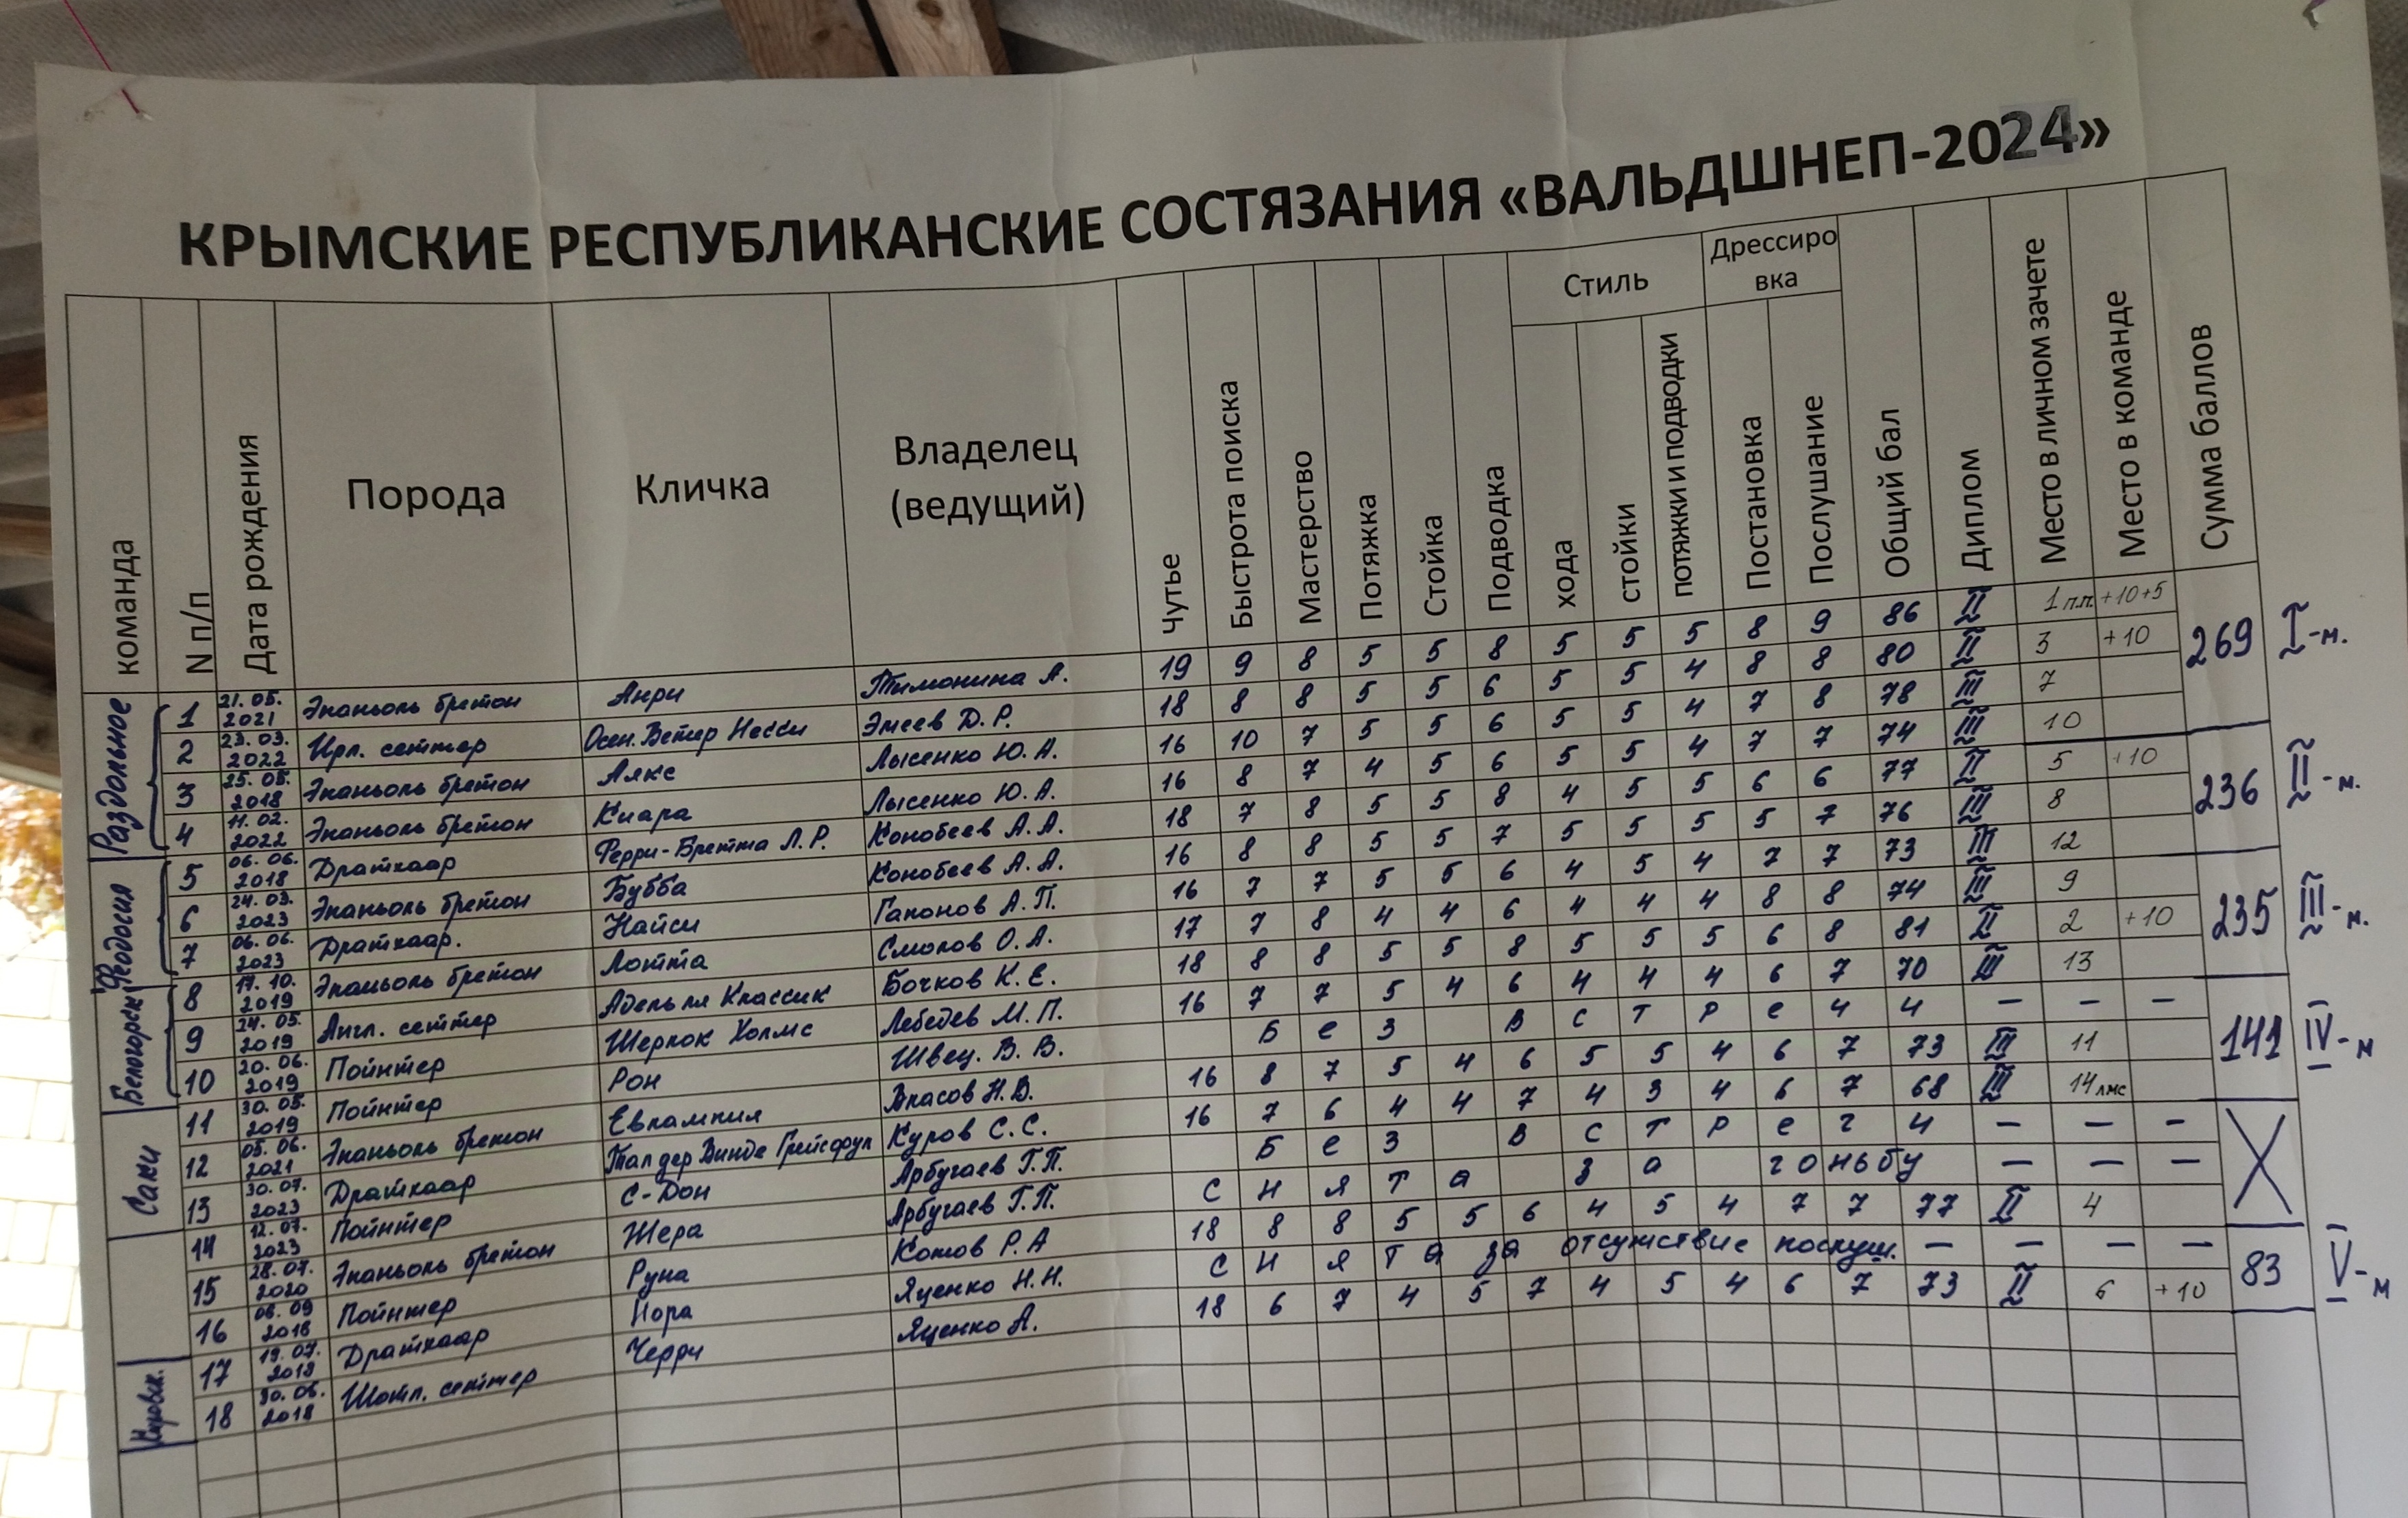 КРЫМСКИЕ РЕСПУБЛИКАНСКИЕ СОСТЯЗАНИЯ «ВАЛЬДШНЕП-2024»
команда N п/п Дата рождения Порода Кличка Владелец (ведущий) Чутье Быстрота поиска Мастерство Потяжка Стойка Подводка Стиль хода стойки потяжки и подводки Дрессировка Постановка Послушание Общий бал Диплом Место в личном зачете Место в команде Сумма баллов
Раздольное 1 21.05.2021 Эпаньоль бретон Анри Тимонина А. 19 9 8 5 5 8 5 5 5 8 9 86 II 1 п.п. +10+5 269 I-м.
2 23.03.2022 Ирл. сеттер Осен.Ветер Несси Змеев Д.Р. 18 8 8 5 5 6 5 5 4 8 8 80 II 3 +10
3 25.05.2018 Эпаньоль бретон Аякс Лысенко Ю.А. 16 10 7 5 5 6 5 5 4 7 8 78 III 7
4 11.02.2022 Эпаньоль бретон Киара Лысенко Ю.А. 16 8 7 4 5 6 5 5 4 7 7 74 III 10
Феодосия 5 06.06.2018 Дратхаар Ферри-Бретта Л.Р. Конобеев А.А. 18 7 8 5 5 8 4 5 5 6 6 77 II 5 +10 236 II-м.
6 24.03.2023 Эпаньоль бретон Бубба Конобеев А.А. 16 8 8 5 5 7 5 5 5 5 7 76 III 8
7 06.06.2023 Дратхаар. Найси Гапонов А.П. 16 7 7 5 5 6 4 5 4 7 7 73 III 12
Белогорск 8 17.10.2019 Эпаньоль бретон Лотта Смолов О.А. 17 7 8 4 4 6 4 4 4 8 8 74 III 9 235 III-м.
9 24.05.2019 Англ. сеттер Адель ля Классик Бочков К.Е. 18 8 8 5 5 8 5 5 5 6 8 81 II 2 +10
10 20.06.2019 Пойнтер Шерлок Холмс Лебедев М.П. 16 7 7 5 4 6 4 4 4 6 7 70 III 13
Саки 11 30.05.2019 Пойнтер Рон Швец. В.В. Без встречи — — — 141 IV-м
12 05.06.2021 Эпаньоль бретон Евлампия Власов Н.В. 16 8 7 5 4 6 5 5 4 6 7 73 III 11
13 30.07.2023 Дратхаар Талдер Винде Грейсфул Куров С.С. 16 7 6 4 4 7 4 3 4 6 7 68 III 14 лмс
14 12.07.2023 Пойнтер С-Дон Арбугаев Г.П. Без встречи — — —
15 28.07.2020 Эпаньоль бретон Жера Арбугаев Г.П. Снята за гоньбу — — —
16 06.09 2018 Пойнтер Руна Котов Р.А 18 8 8 5 5 6 4 5 4 7 7 77 II 4
Кировск. 17 19.07.2018 Дратхаар Нора Яценко Н.Н. Снята за отсутствие послуш. — — — — 83 V-м
18 30.06.2018 Шотл. сеттер Черри Яценко А. 18 6 7 4 5 7 4 5 4 6 7 73 II 6 +10